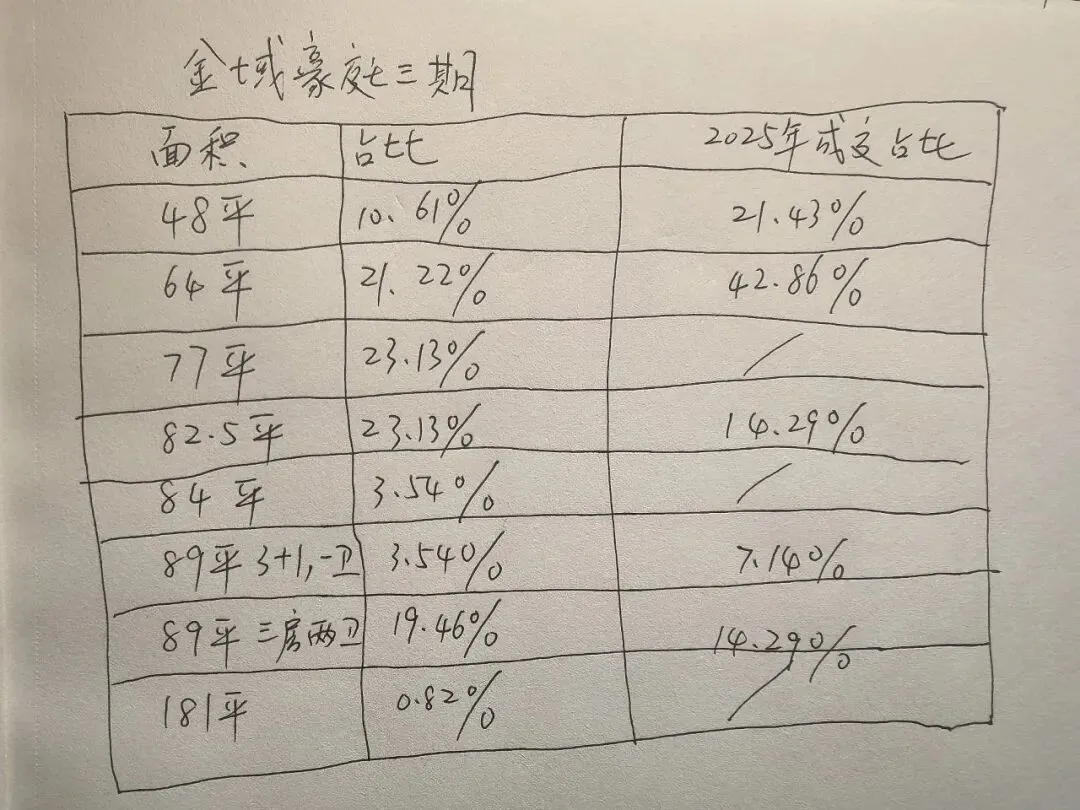 金域豪庭三期
面积 占比 2025年成交占比
48平 10.61% 21.43%
64平 21.22% 42.86%
77平 23.13% /
82.5平 23.13% 14.29%
84平 3.54% /
89平 3+1,一卫 3.54% 7.14%
89平 三房两卫 19.46% 14.29%
181平 0.82% /